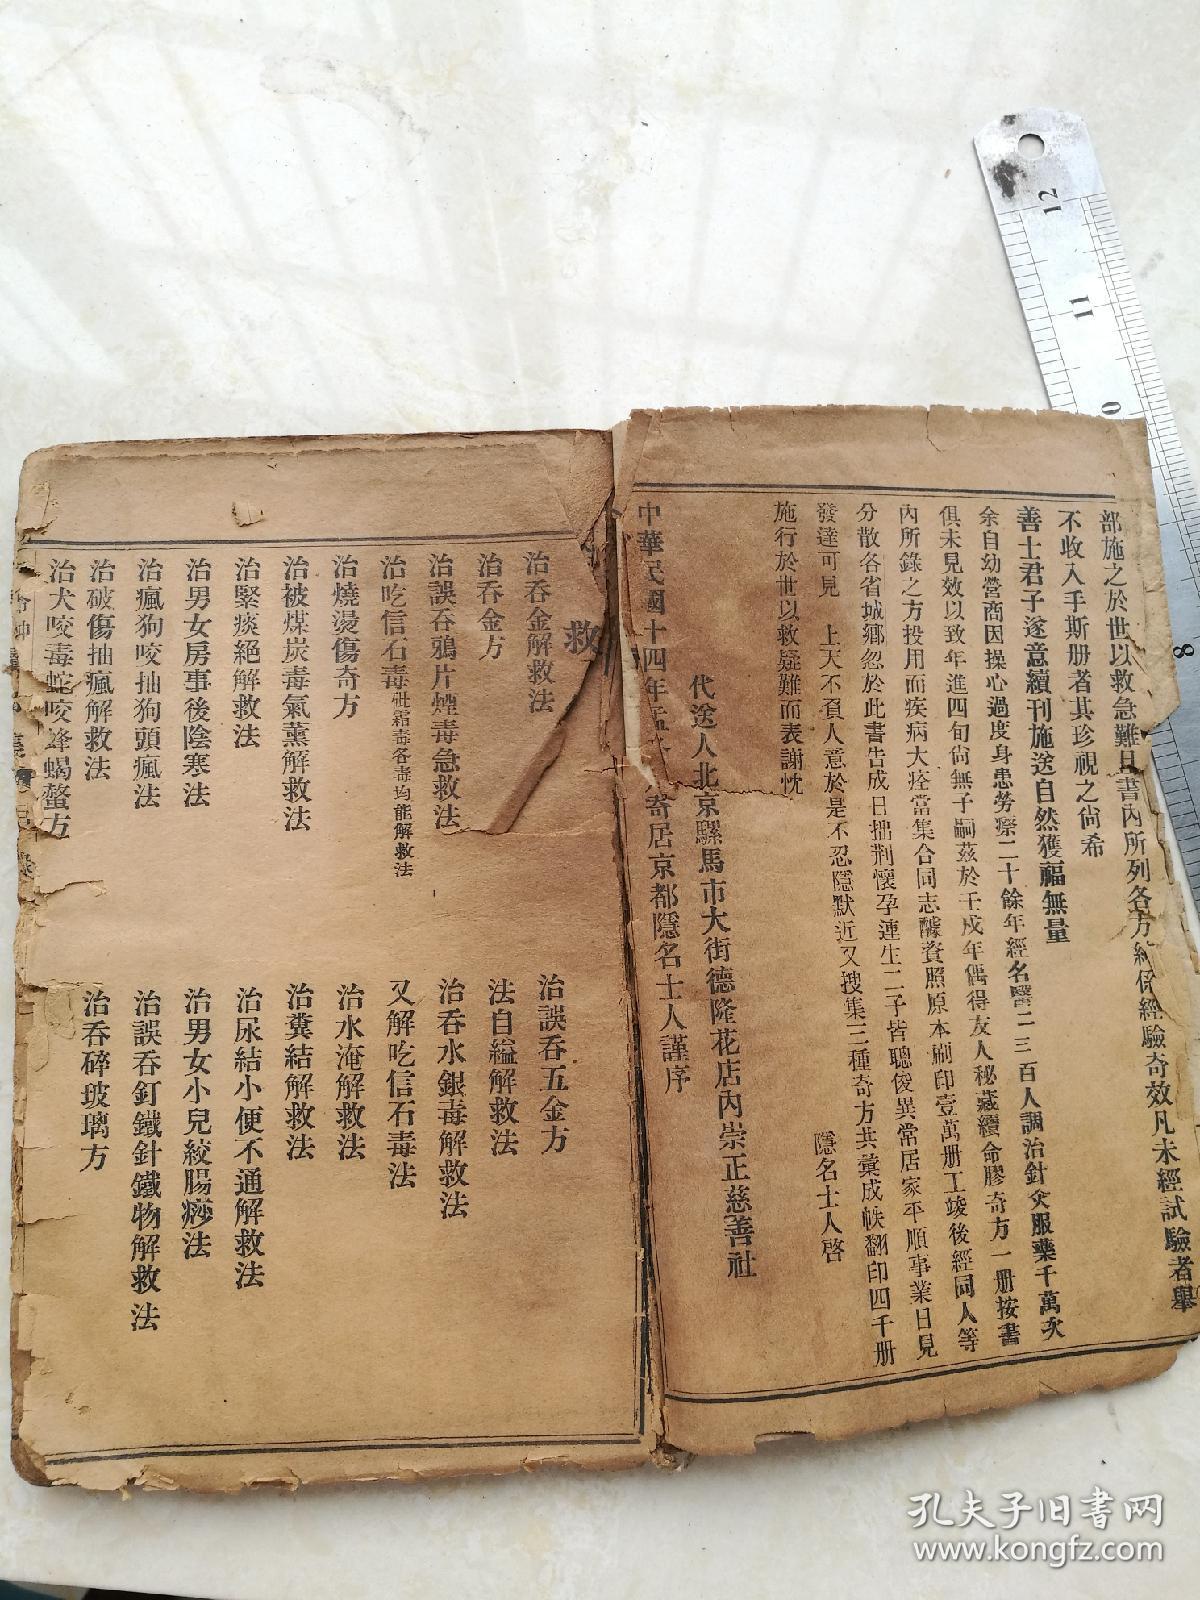 部施之於世以救急難且書內所列各方經係經驗奇效凡未經試驗者舉
不收入手斯册者其珍視之尙希
善士君子遂意續刊施送自然獲福無量
余自幼營商因操心過度身患勞瘵二十餘年經名醫二三百人調治針灸服藥千萬次
俱未見效以致年進四旬尙無子嗣茲於壬戌年偶得友人秘藏續命膠奇方一册按書
內所錄之方投用而疾病大痊當集合同志醵資照原本刷印壹萬册工竣後經同人等
分散各省城鄉忽於此書告成日拙荆懷孕連生二子皆聰俊異常居家平順事業日見
發達可見 上天不負人意於是不忍隱默近又搜集三種奇方共彙成帙翻印四千册
施行於世以救疑難而表謝忱
隱名士人啓
代送人北京騾馬市大街德隆花店內崇正慈善社
中華民國十四年孟 寄居京都隱名士人謹序
救
治吞金解救法
治誤吞五金方
治吞金方
法自縊解救法
治誤吞鴉片煙毒急救法
治吞水銀毒解救法
治吃信石毒砒霜毒各毒均能解救法
又解吃信石毒法
治燒湯傷奇方
治水淹解救法
治被煤炭毒氣薰解救法
治糞結解救法
治緊痰絕解救法
治尿結小便不通解救法
治男女房事後陰寒法
治男女小兒絞腸痧法
治瘋狗咬抽狗頭瘋法
治誤吞釘鐵針鐵物解救法
治破傷抽瘋解救法
治吞碎玻璃方
治犬咬毒蛇咬蜂蝎螫方
12
11
8
孔夫子旧书网
www.kongfz.com